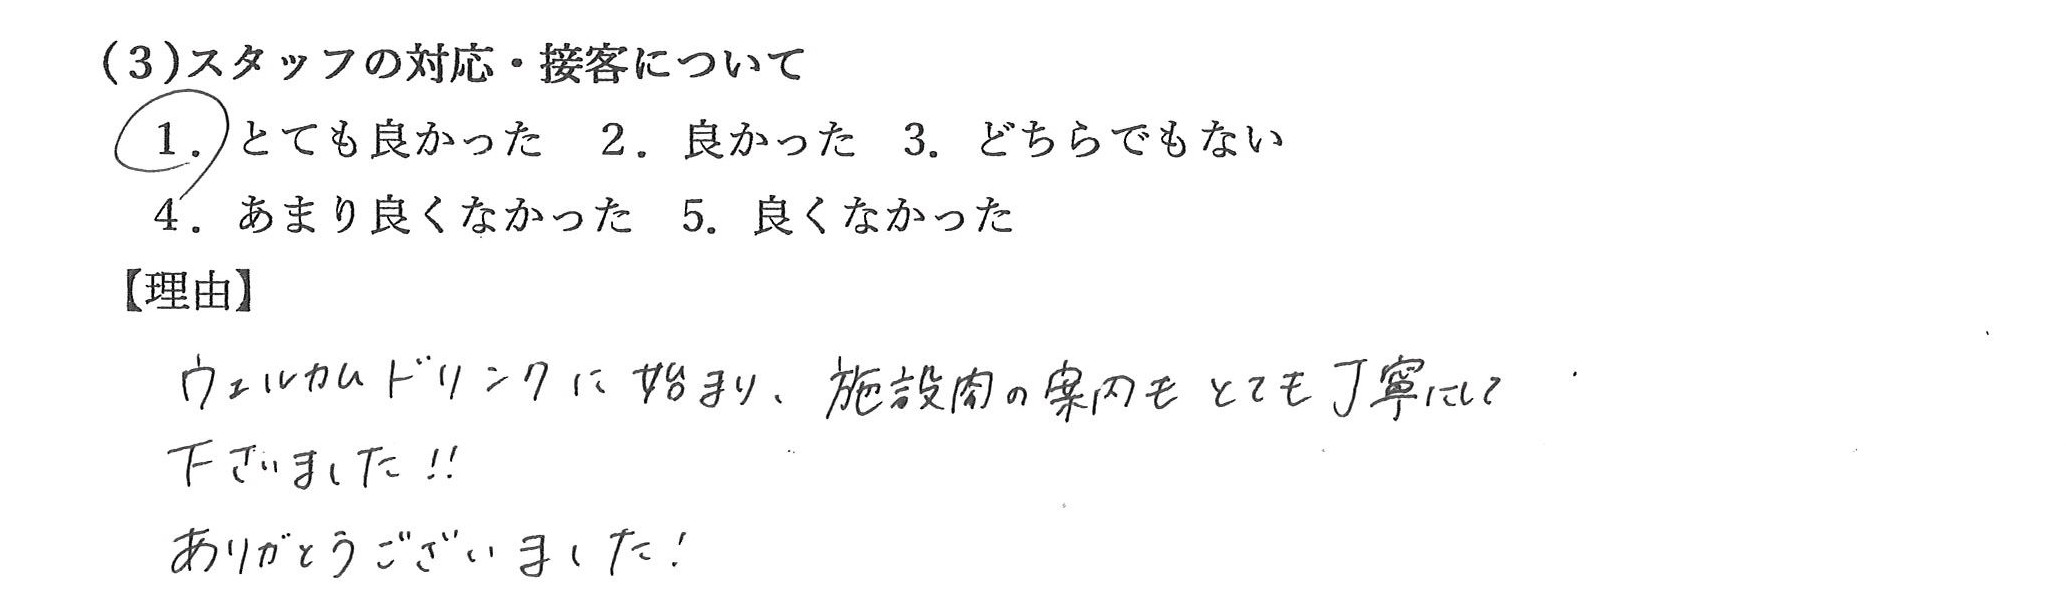 (3)スタッフの対応・接客について
1. とても良かった 2. 良かった 3. どちらでもない
4. あまり良くなかった 5. 良くなかった
【理由】
ウェルカムドリンクに始まり、施設内の案内もとても丁寧にして
下さいました!!
ありがとうございました!